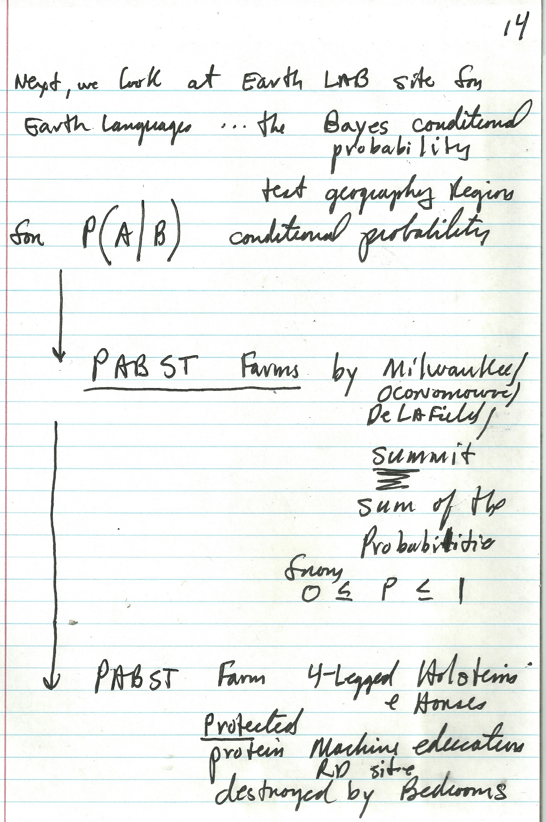 14
Next, we look at Earth LAB site for
Earth Languages ... the Bayes conditional
probability
test geography Region
for P(A|B) conditional probability
PABST Farms by Milwaukee/
Oconomowoc/
DeLAField/
Summit
sum of the
Probabilitie
from
0 ≤ P ≤ 1
PABST Farm 4-Legged Holsteins
& Horses
Protected
protein Machine education
RD site
destroyed by Bedrooms